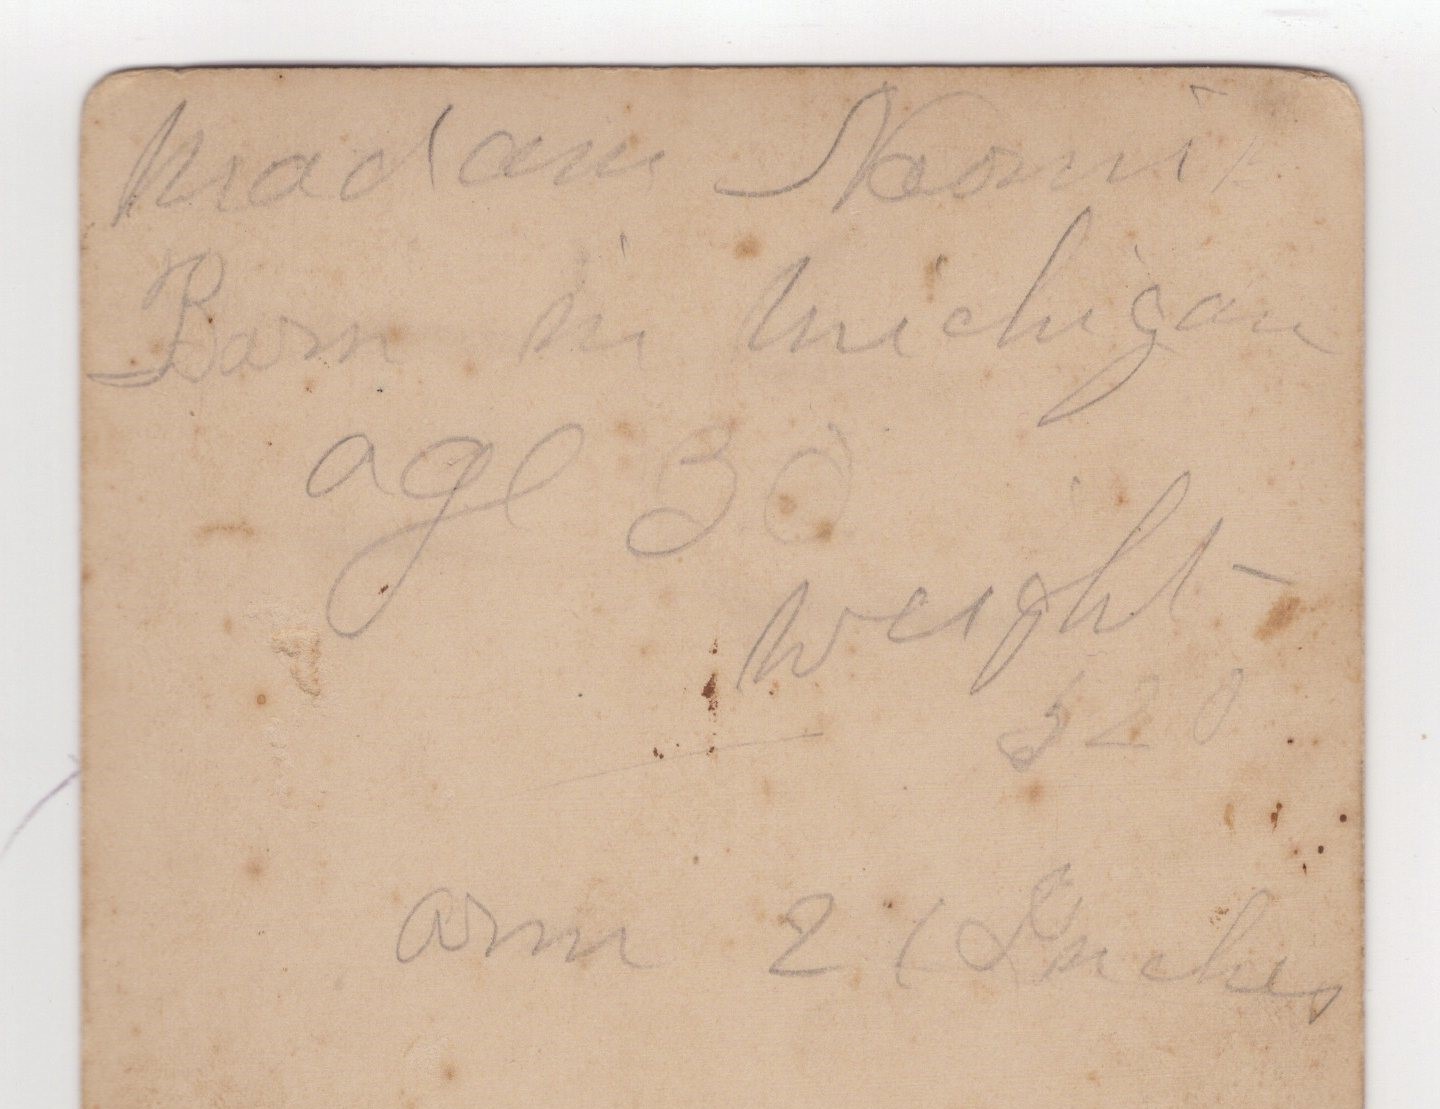 Madam Naomi
Born in Michigan
age 30
Weight
520
arm 21 Inches